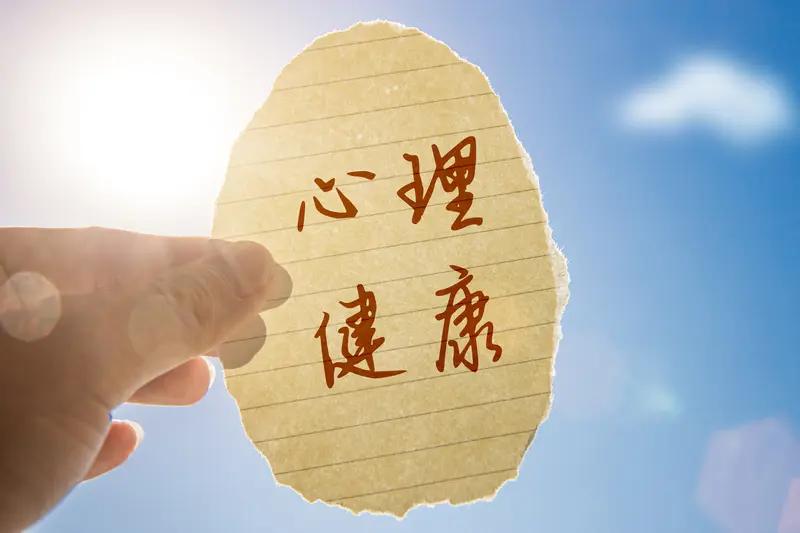 心理
健康